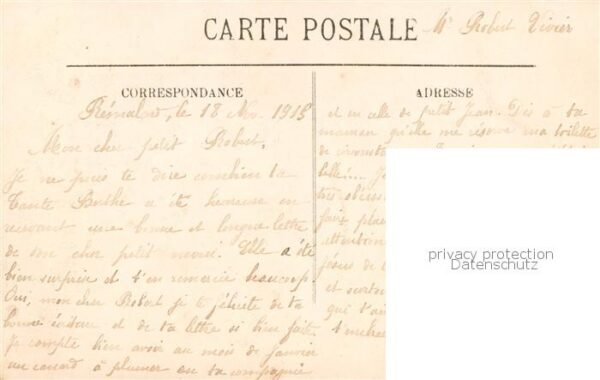 CARTE POSTALE
Mr Robert Vivier
CORRESPONDANCE
Rémalard, le 18 Nov. 1915
Mon cher petit Robert,
Je ne puis te dire combien ta
Tante Berthe a été heureuse en
recevant une bonne et longue lettre
de son cher petit Elle a été
bien surprise et t'en remercie beaucoup.
Oui, mon cher Robert je te félicite de ta
bonne écriture et de ta lettre si bien faite
Je compte bien avoir au mois de janvier
un canard à plumer en ta compagnie
ADRESSE
et en celle de petit Jean. Dis à ta
maman qu'elle me réserve ma toilette
de
belle!... Je
très
faire
attention
de
et surtout
qui t'aime
t'embrasse
privacy protection
Datenschutz